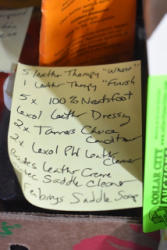 5 Leather Therapy "Wash"
1 Leather Therapy "Finish"
5 x 100% Neatsfoot
Lexol Leath Dressy
2 x Tanners Choice
Conditioner
2x Lexol PH Leather
Cleaner
Leather Creme
Saddle Cleaner
Fiebings Saddle Soap
COLLAR CITY